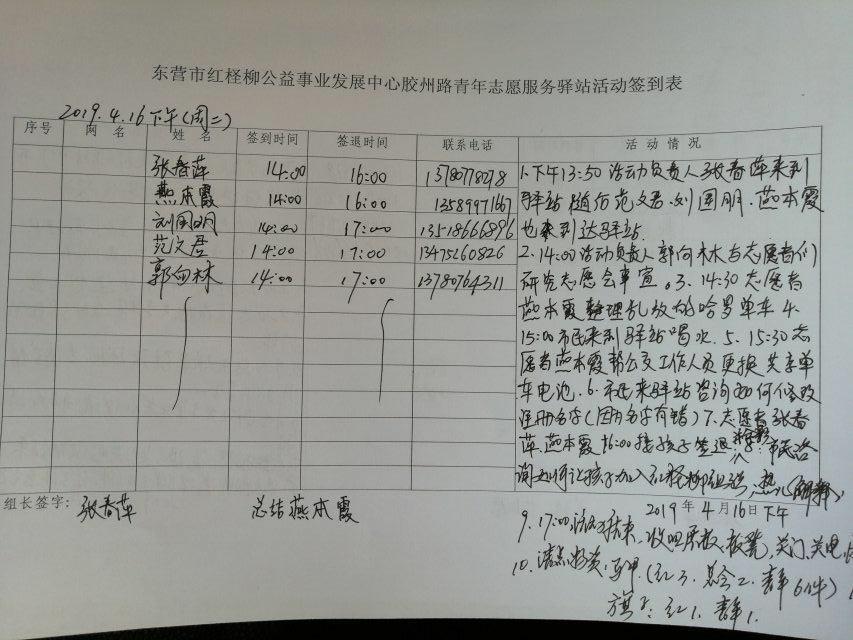 东营市红柽柳公益事业发展中心胶州路青年志愿服务驿站活动签到表
2019.4.16下午(周二)
序号 网名 姓名 签到时间 签退时间 联系电话 活动情况
张春萍 14:00 16:00 13780778278
燕本霞 14:00 16:00 13589971167
刘国明 14:00 17:00 13518666896
范文君 14:00 17:00 13475160826
郭向林 14:00 17:00 13780764311
1.下午13:50活动负责人张春萍来到
驿站随后范文君.刘国明.燕本霞
也来到达驿站.
2.14:00活动负责人郭向林与志愿者们
研究志愿会事宜。3.14:30志愿者
燕本霞整理乱放的哈罗单车4.
15:00市民来到驿站喝水.5.15:30志
愿者燕本霞帮公交工作人员更换共享单
车电池.6.市民来驿站咨询如何修改
注册名字(因名字有错)7.志愿者张春
萍.燕本霞16:00接孩子签退 市民咨
询如何让孩子加入红柽柳组织,热心
组长签字: 张春萍 总结燕本霞
2019年4月16日下午
9.17:00活动结束.收回展板,板凳,关门、关电
10.清点物资:马甲.(红3.总会2.青年6件)
旗子:红1.青年1.